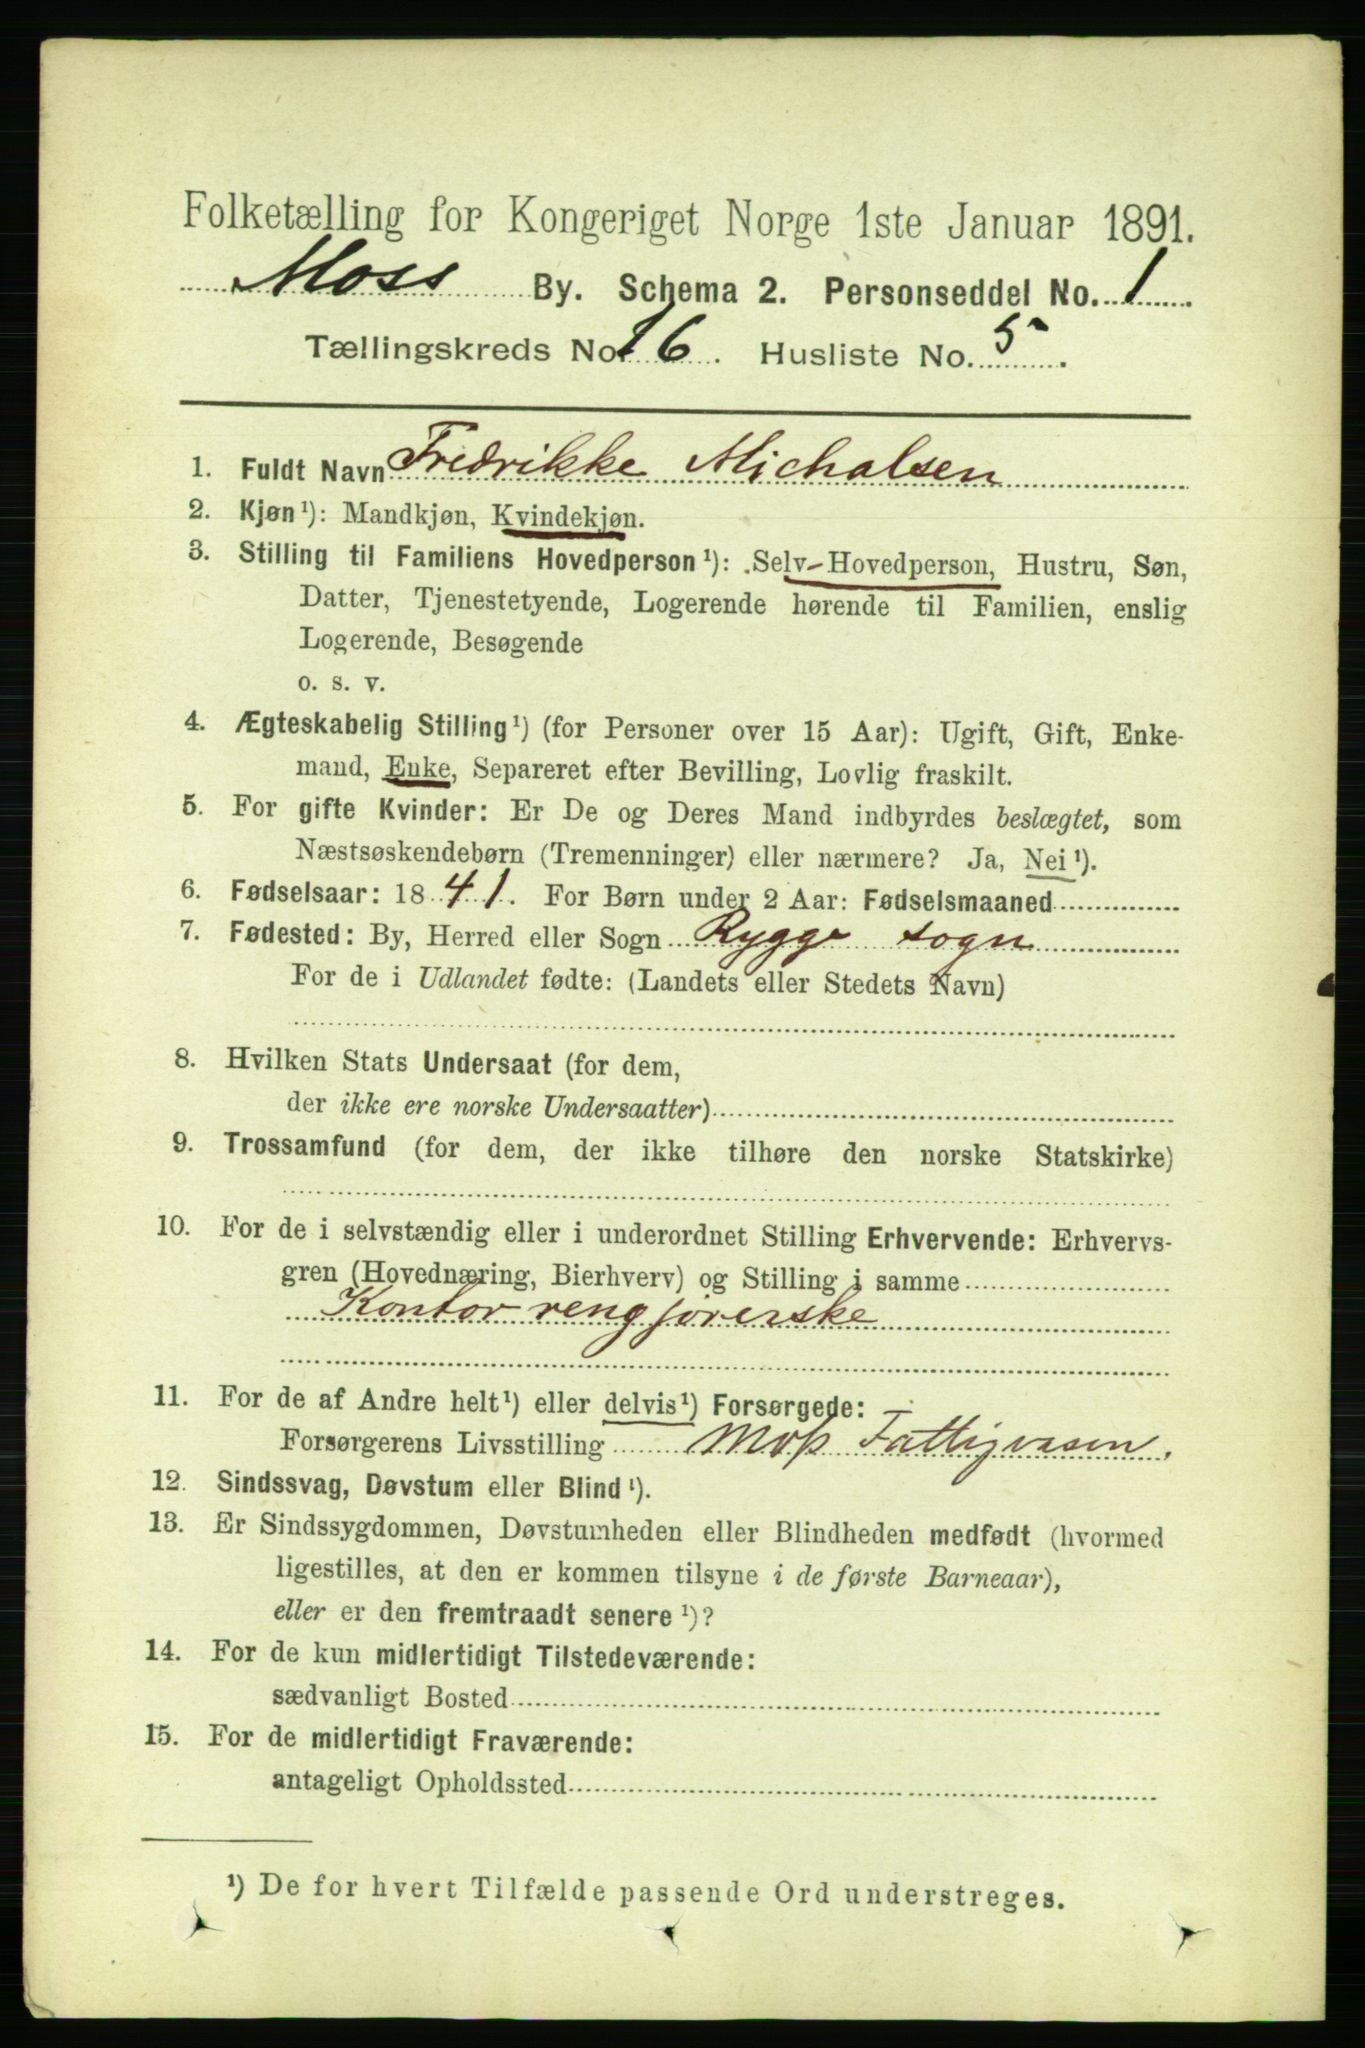 Folketælling for Kongeriget Norge 1ste Januar 1891.
Moss By. Schema 2. Personseddel No. 1
Tællingskreds No. 16. Husliste No. 5.
1. Fuldt Navn Fredrikke Michalsen
2. Kjøn¹): Mandkjøn, Kvindekjøn.
3. Stilling til Familiens Hovedperson¹): Selv-Hovedperson, Hustru, Søn,
Datter, Tjenestetyende, Logerende hørende til Familien, enslig
Logerende, Besøgende
o. s. v.
4. Ægteskabelig Stilling¹) (for Personer over 15 Aar): Ugift, Gift, Enke-
mand, Enke, Separeret efter Bevilling, Lovlig fraskilt.
5. For gifte Kvinder: Er De og Deres Mand indbyrdes beslægtet, som
Næstsøskendebørn (Tremenninger) eller nærmere? Ja, Nei¹).
6. Fødselsaar: 1841. For Børn under 2 Aar: Fødselsmaaned
7. Fødested: By, Herred eller Sogn Rygge sogn
For de i Udlandet fødte: (Landets eller Stedets Navn)
8. Hvilken Stats Undersaat (for dem,
der ikke ere norske Undersaatter)
9. Trossamfund (for dem, der ikke tilhøre den norske Statskirke)
10. For de i selvstændig eller i underordnet Stilling Erhvervende: Erhvervs-
gren (Hovednæring, Bierhverv) og Stilling i samme
Kontor rengjørerske
11. For de af Andre helt¹) eller delvis¹) Forsørgede:
Forsørgerens Livsstilling Moss Fattigvæsen.
12. Sindssvag, Døvstum eller Blind¹).
13. Er Sindssygdommen, Døvstumheden eller Blindheden medfødt (hvormed
ligestilles, at den er kommen tilsyne i de første Barneaar),
eller er den fremtraadt senere¹)?
14. For de kun midlertidigt Tilstedeværende:
sædvanligt Bosted
15. For de midlertidigt Fraværende:
antageligt Opholdssted
¹) De for hvert Tilfælde passende Ord understreges.